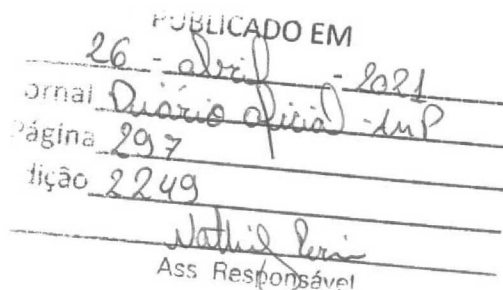 PUBLICADO EM
26 - abril - 2021
ornal Diário oficial - AMP
Página 297
dição 2249
Ass Responsável